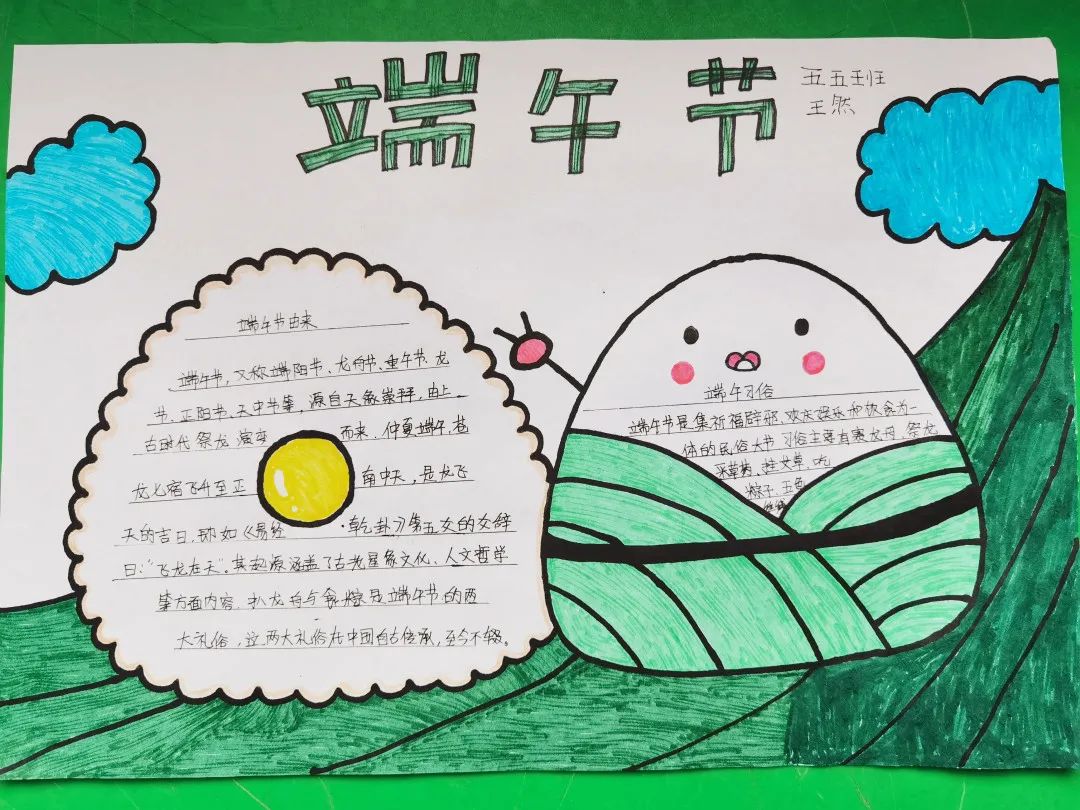 端午节
五五班
王然
端午节由来
端午节,又称端阳节、龙舟节、重午节、龙
节、正阳节、天中节等,源自天象崇拜,由上
古时代祭龙演变 而来、仲夏端午,苍
龙七宿飞升至正 南中天,是龙飞
天的吉日,即如《易经 ·乾卦》第五爻的爻辞
曰:“飞龙在天”。其起源涵盖了古老星象文化、人文哲学
等方面内容,扒龙舟与食粽是端午节的两
大礼俗,这两大礼俗在中国自古传承,至今不辍。
端午习俗
端午节是集祈福辟邪、欢庆娱乐和饮食为一
体的民俗大节 习俗主要有赛龙舟、祭龙
采草药、挂艾草、吃
粽子、五色